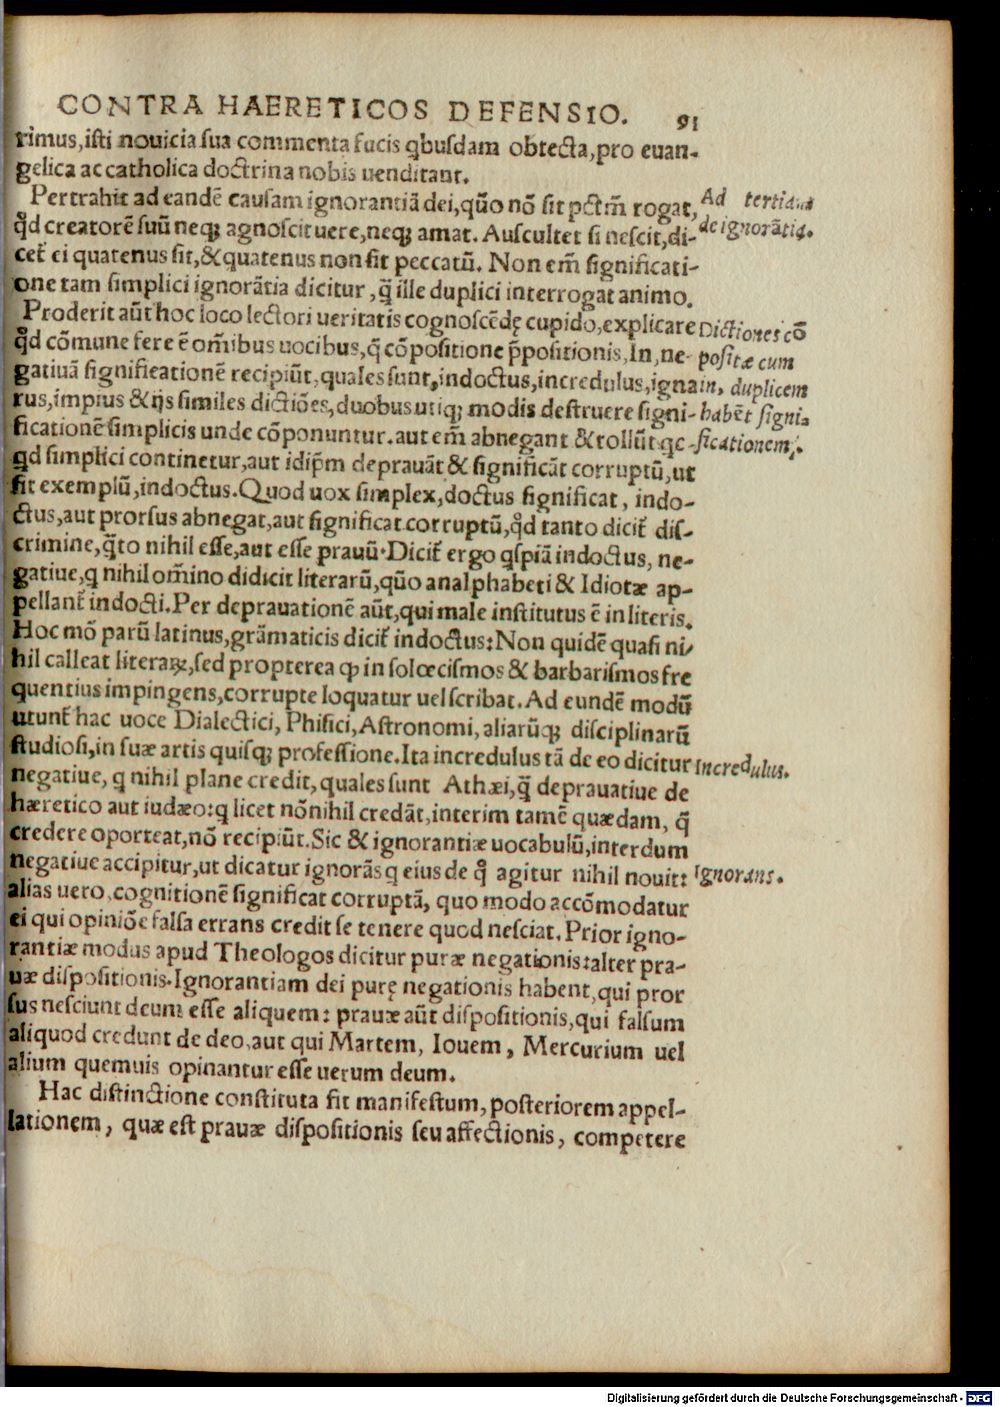 CONTRA HAERETICOS DEFENSIO. 91
rimus,isti nouicia sua commenta fucis qbusdam obtecta,pro euan-
gelica ac catholica doctrina nobis uenditant.
Pertrahit ad eandē causam ignorantiā dei,quō nō sit pctm̄ rogat,
qd creatorē suū neq; agnoscit uere,neq; amat. Auscultet si nescit,di-
cet̄ ei quatenus sit,& quatenus non sit peccatū. Non em̄ significati-
one tam simplici ignorātia dicitur,q̄ ille duplici interrogat animo.
Proderit aūt hoc loco lectori ueritatis cognoscēdę cupido,explicare
qd cōmune fere ē om̄ibus uocibus,q̄ cōpositione p̄positionis,In,ne-
gatiuā significationē recipiūt,quales sunt,indoctus,incredulus,igna
rus,impius & ijs similes dictiōes,duobus utiq; modis destruere signi-
ficationē simplicis unde cōponuntur.aut em̄ abnegant & tollūt qc-
qd simplici continetur,aut idip̄m deprauāt & significāt corruptū,ut
sit exemplū,indoctus.Quod uox simplex,doctus significat, indo-
ctus,aut prorsus abnegat,aut significat corruptū,qd tanto dicit̄ dis-
crimine,q̄to nihil esse,aut esse prauū.Dicit̄ ergo qspiā indoctus, ne-
gatiue,q nihil om̄ino didicit literarū,quō analphabeti & Idiotæ ap-
pellant̄ indocti.Per deprauationē aūt,qui male institutus ē in literis.
Hoc mō parū latinus,grāmaticis dicit̄ indoctus:Non quidē quasi ni-
hil calleat literaꝝ,sed propterea ꝙ in solœcismos & barbarismos fre
quentius impingens,corrupte loquatur uel scribat. Ad eundē modū
utunt̄ hac uoce Dialectici, Phisici, Astronomi, aliarūq; disciplinarū
studiosi,in suæ artis quisq; professione.Ita incredulus tā de eo dicitur
negatiue, q nihil plane credit,quales sunt Athæi,q̄ deprauatiue de
hæretico aut iudæo:q licet nōnihil credāt,interim tamē quædam, q̄
credere oporteat,nō recipiūt.Sic & ignorantiæ uocabulū,interdum
negatiue accipitur,ut dicatur ignorās q eius de q̊ agitur nihil nouit:
alias uero,cognitionē significat corruptā, quo modo accōmodatur
ei qui opiniōe falsa errans credit se tenere quod nesciat. Prior igno-
rantiæ modus apud Theologos dicitur puræ negationis:alter pra-
uæ dispositionis.Ignorantiam dei purę negationis habent,qui pror
sus nesciunt deum esse aliquem: prauæ aūt dispositionis,qui falsum
aliquod credunt de deo,aut qui Martem, Iouem, Mercurium uel
alium quemuis opinantur esse uerum deum.
Hac distinctione constituta fit manifestum,posteriorem appel-
lationem, quæ est prauæ dispositionis seu affectionis, competere
Ad tertium
de ignorātia.
Dictiones cō
positæ cum
in, duplicem
habēt signi-
ficationem.
Incredulus.
Ignorans.
Digitalisierung gefördert durch die Deutsche Forschungsgemeinschaft - DFG